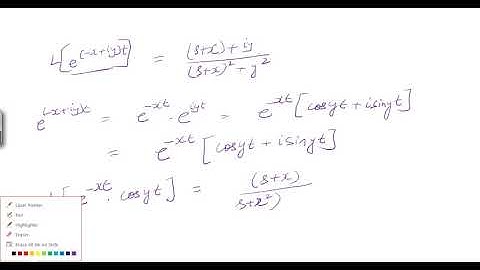 L[e^(-x+iy)t] = (s+x)+iy / (s+x)²+y²
e^(-x+iy)t = e^-xt . e^iyt = e^-xt [cosyt+isinyt]
= e^-xt [cosyt+isinyt]
[e^-xt . cosyt] = (s+x) / s+x²)
Laser Pointer
Pen
Highlighter
Eraser
Erase All Ink on Slide